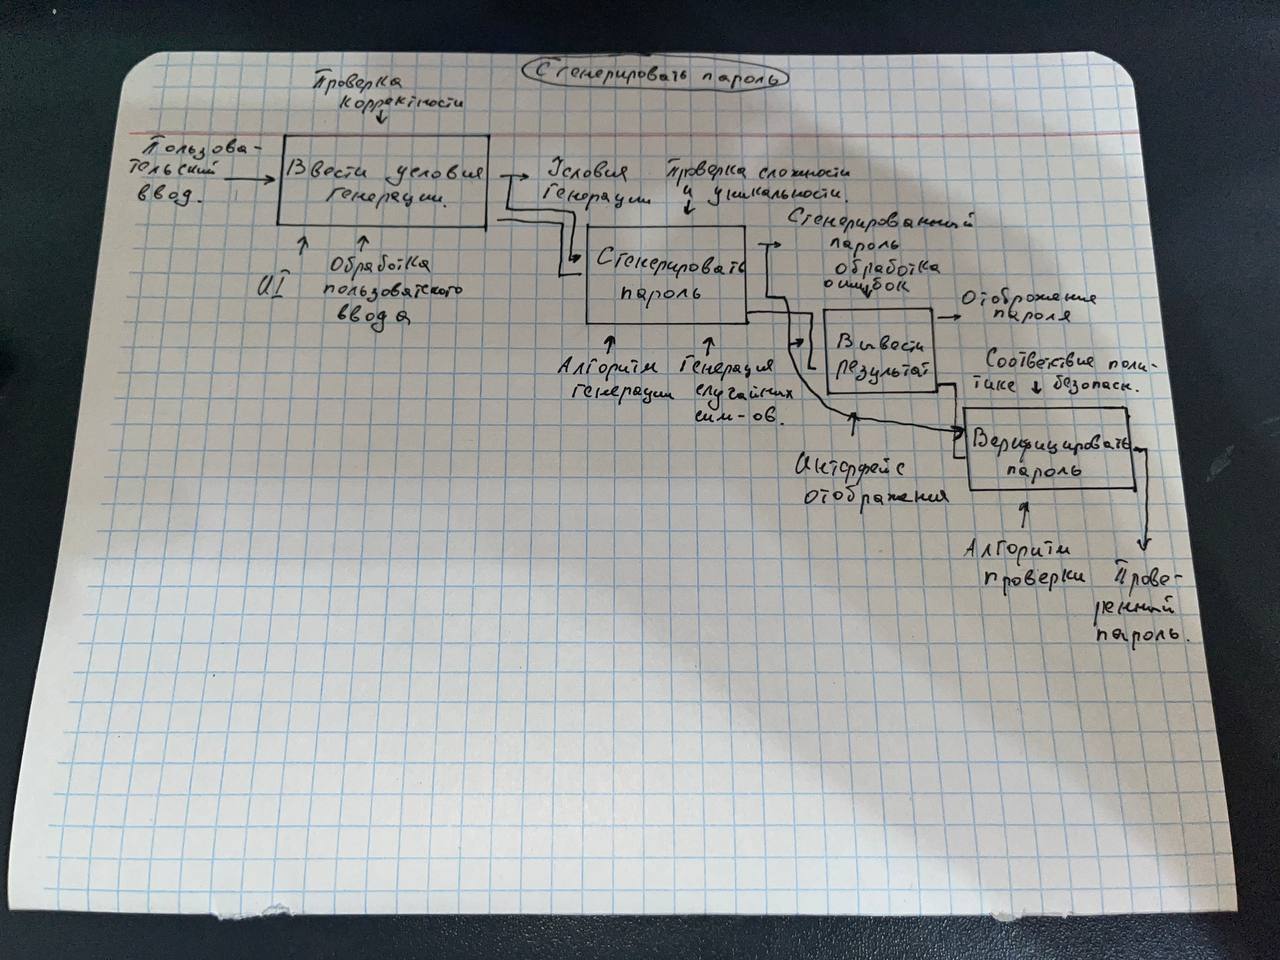 Сгенерировать пароль
Проверка
корректности
Пользова-
тельский
ввод.
Ввести условия
генерации.
UI
Обработка
пользоватского
ввода
Условия
генерации
Проверка сложности
и уникальности.
Сгенерировать
пароль
Алгоритм
генерации
Генерация
случайных
сим-ов.
Сгенерированный
пароль
обработка
ошибок
Вывести
результат
Отоброжение
пароля
Интерфейс
отображения
Соотвествие поли-
тике безопасн.
Верифицировать
пароль
Алгоритм
проверки
Прове-
ренный
пароль.